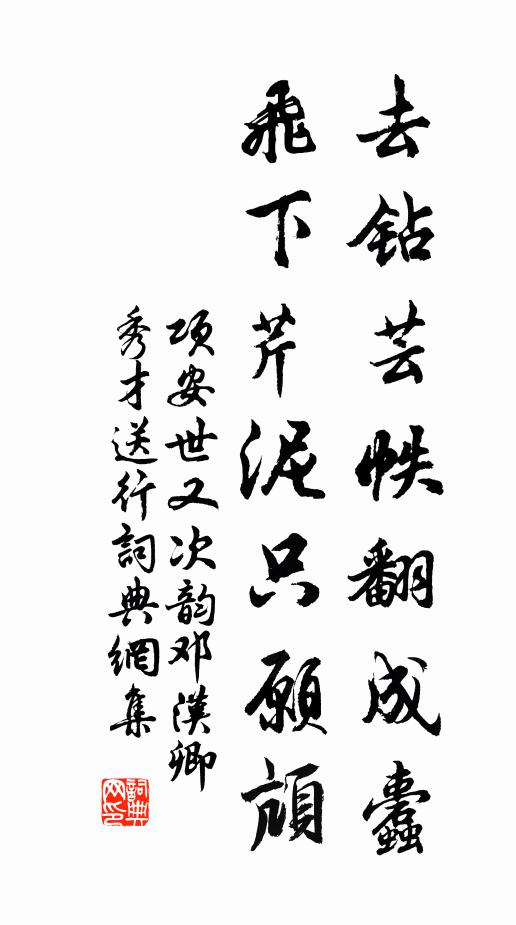 去钻芸帙翻成蠹
飛下芹泥只願頏
项安世又次韵邓漢卿
秀才送行詞典網集
詞典网印